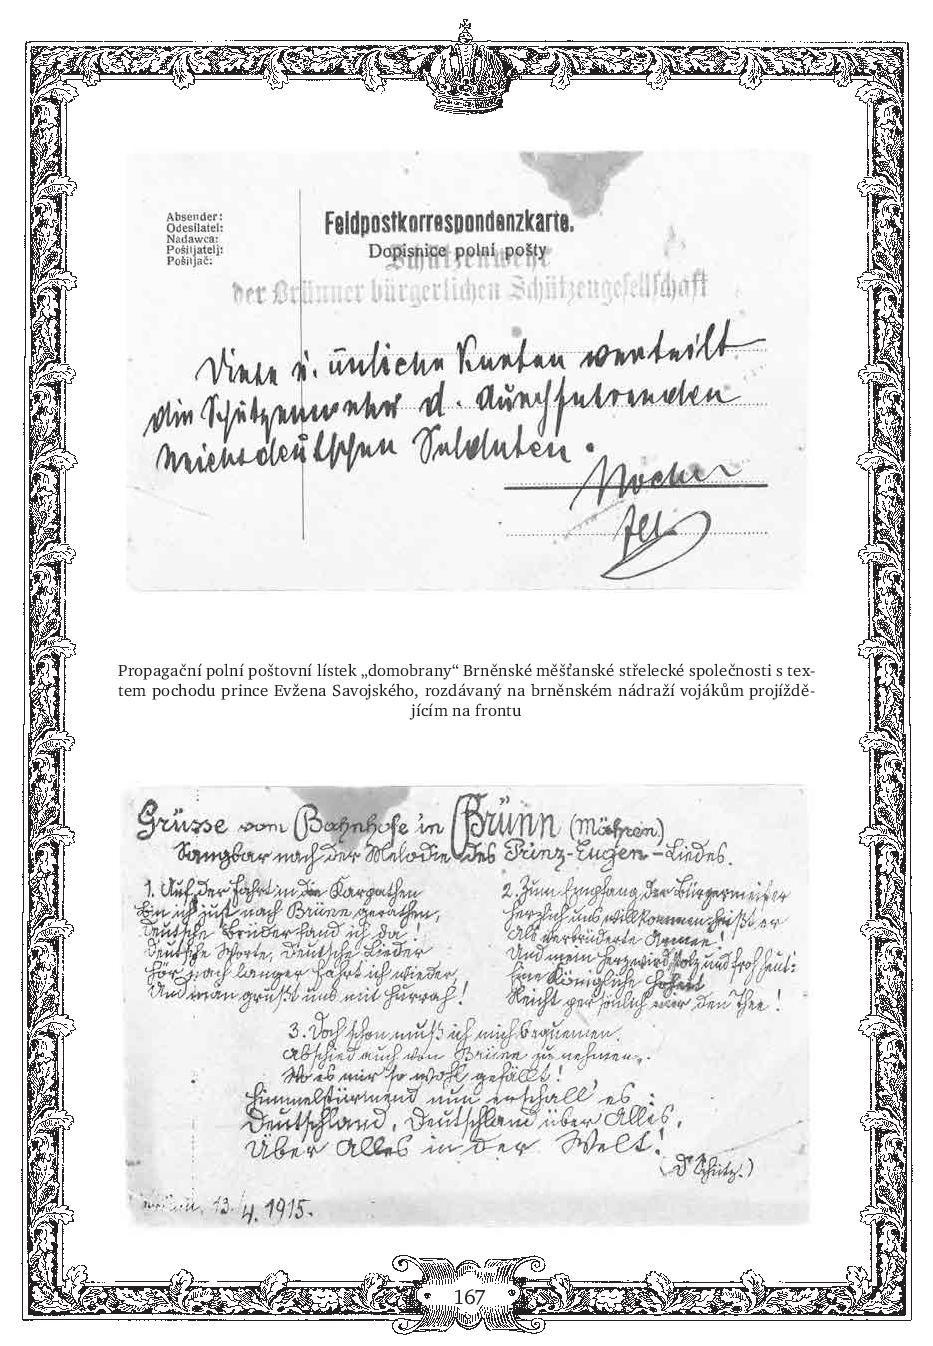 Absender:
Odesílatel:
Nadawca:
Pošiljatelj:
Pošiljač:
Feldpostkorrespondenzkarte.
Dopisnice polní pošty
Schützenwehr
der Brünner bürgerlichen Schützengesellschaft
Diese u. änliche Karten verteilt
die Schützenwehr d. durchfahrenden
Reichsdeutschen Soldaten.
Propagační polní poštovní lístek „domobrany“ Brněnské měšťanské střelecké společnosti s tex-
tem pochodu prince Evžena Savojského, rozdávaný na brněnském nádraží vojákům projíždě-
jícím na frontu
Grüsse vom Bahnhofe in Brünn (Mähren)
Sangbar nach der Melodie des Prinz-Eugen-Liedes.
1. Auf der Fahrt in die Karpathen
Bin ich just nach Brünn gerathen,
Deutsche Brüder fand ich da!
Deutsche Worte, Deutsche Lieder
Hör nach langer Fahrt ich wieder,
Und man grüßt uns mit Hurrah!
2. Zum Empfang der Bürgermeister
Herzlich uns willkommen heißt er
Als verbrüderte Armee!
Und mein Herz wird stolz und froh heut:
Eine Königliche Hoheit
Reicht persönlich mir den Thee!
3. Doch schon muß ich mich bequemen,
Abschied auch von Brünn zu nehmen,
Wo es mir so wohl gefällt!
Himmelstürmend nun erschall' es:
Deutschland, Deutschland über Alles,
Über Alles in der Welt!
(D' Schütz.)
13./4. 1915.
167